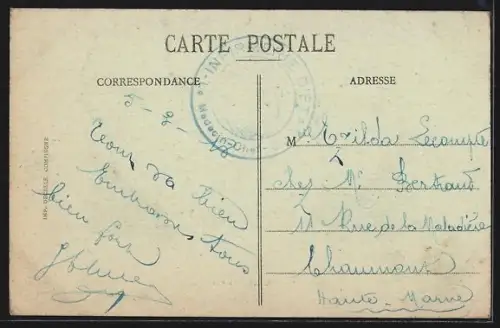 CARTE POSTALE
CORRESPONDANCE
ADRESSE
Médecin-Chef
Tout va bien
Embrassons tous
bien fort
Melle Exilda Lecompte
chez Mr Bertrand
11 Rue de la Maladière
Chaumont
Haute-Marne